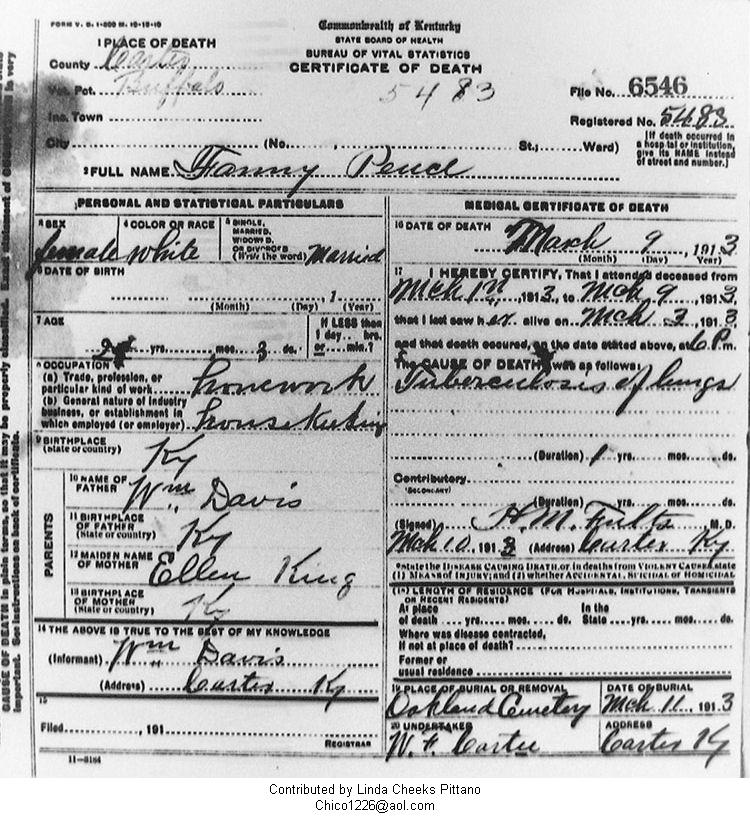 FORM V. S. 1-500 M. 12-18-10
Commonwealth of Kentucky
STATE BOARD OF HEALTH
BUREAU OF VITAL STATISTICS
CERTIFICATE OF DEATH
1 PLACE OF DEATH
County Carter
Vot. Pct. Buffalo
5483
File No. 6546
Inc. Town
Registered No. 5483
City (No. St.; Ward)
[If death occurred in a hospital or institution, give its NAME instead of street and number.]
2 FULL NAME Fanny Pence
PERSONAL AND STATISTICAL PARTICULARS
3 SEX female
4 COLOR OR RACE white
5 SINGLE, MARRIED, WIDOWED, OR DIVORCED (Write the word) Married
6 DATE OF BIRTH
(Month) (Day), 1 (Year)
7 AGE
yrs. mos. 3 ds.
If LESS than 1 day hrs. or min.?
8 OCCUPATION
(a) Trade, profession, or particular kind of work housework
(b) General nature of industry business, or establishment in which employed (or employer)
9 BIRTHPLACE (State or country) Ky
PARENTS
10 NAME OF FATHER Wm Davis
11 BIRTHPLACE OF FATHER (State or country) Ky
12 MAIDEN NAME OF MOTHER Ellen King
13 BIRTHPLACE OF MOTHER (State or country) Ky
14 THE ABOVE IS TRUE TO THE BEST OF MY KNOWLEDGE
(Informant) Wm Davis
(Address) Carter Ky
15
Filed , 191
REGISTRAR
11-3184
MEDICAL CERTIFICATE OF DEATH
16 DATE OF DEATH
March 9, 1913
(Month) (Day) (Year)
17 I HEREBY CERTIFY, That I attended deceased from
Mch 1st, 1913, to Mch 9, 1913
that I last saw her alive on Mch 3, 1913
and that death occured, on the date stated above, at 6 P.m.
The CAUSE OF DEATH was as follows:
Tuberculosis of lungs
(Duration) 1 yrs. mos. ds.
Contributory
(SECONDARY)
(Duration) yrs. mos. ds.
(Signed) H. M. Fultz M. D.
Mch 10, 1913 (Address) Carter Ky
*State the DISEASE CAUSING DEATH, or, in deaths from VIOLENT CAUSES, state
(1) MEANS OF INJURY; and (2) whether ACCIDENTAL, SUICIDAL or HOMICIDAL
18 LENGTH OF RESIDENCE (FOR HOSPITALS, INSTITUTIONS, TRANSIENTS OR RECENT RESIDENTS)
At place of death yrs. mos. ds. In the State yrs. mos. ds.
Where was disease contracted,
If not at place of death?
Former or
usual residence
19 PLACE OF BURIAL OR REMOVAL Oakland Cemetery
DATE OF BURIAL Mch 11, 1913
20 UNDERTAKER W. F. Cartee
ADDRESS Carter Ky
CAUSE OF DEATH in plain terms, so that it may be properly classified.
important. See instructions on back of certificate.
Contributed by Linda Cheeks Pittano
Chico1226@aol.com